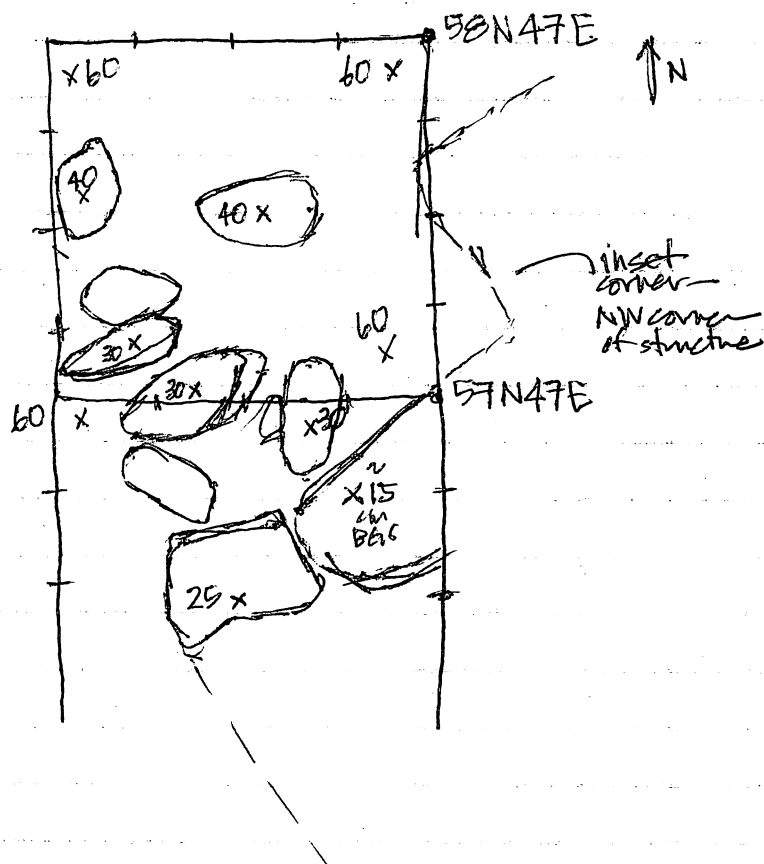 58N47E
x 60
60 x
N
40
x
40 x
inset
corner—
NW corner
of structure
60
x
30 x
30 x
57N47E
60 x
~
x 15
cm
BGS
25 x